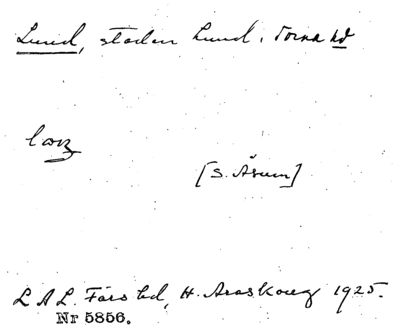 Lund, staden Lund. Torna hd
[S. Åsum]
L A L. Färs hd, H. Araskoug 1925.
Nr 5856.